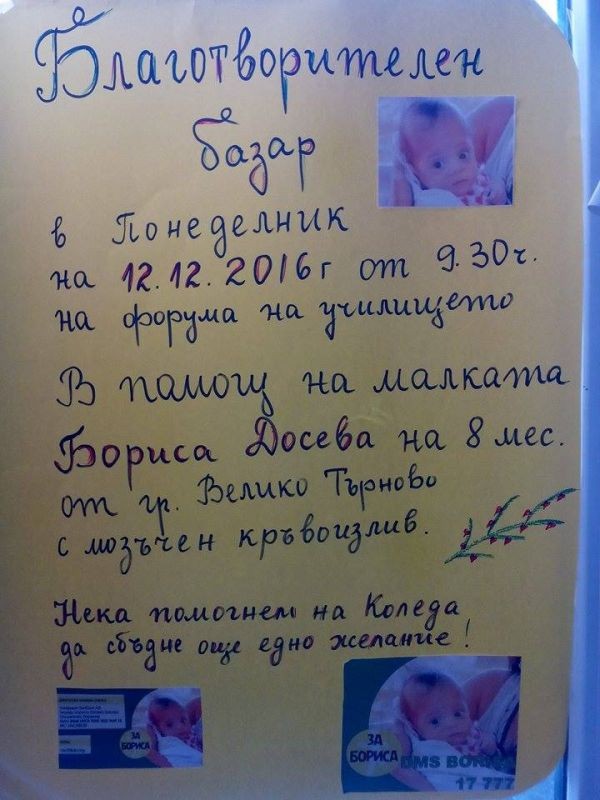 Благотворителен
базар
в Понеделник
на 12.12.2016г от 9.30ч.
на форума на училището
В помощ на малката
Бориса Досева на 8 мес.
от гр. Велико Търново
с мозъчен кръвоизлив.
Нека помогнем на Коледа
да сбъдне още едно желание!
ЗА
БОРИСА
ЗА
БОРИСА
DMS
17 777